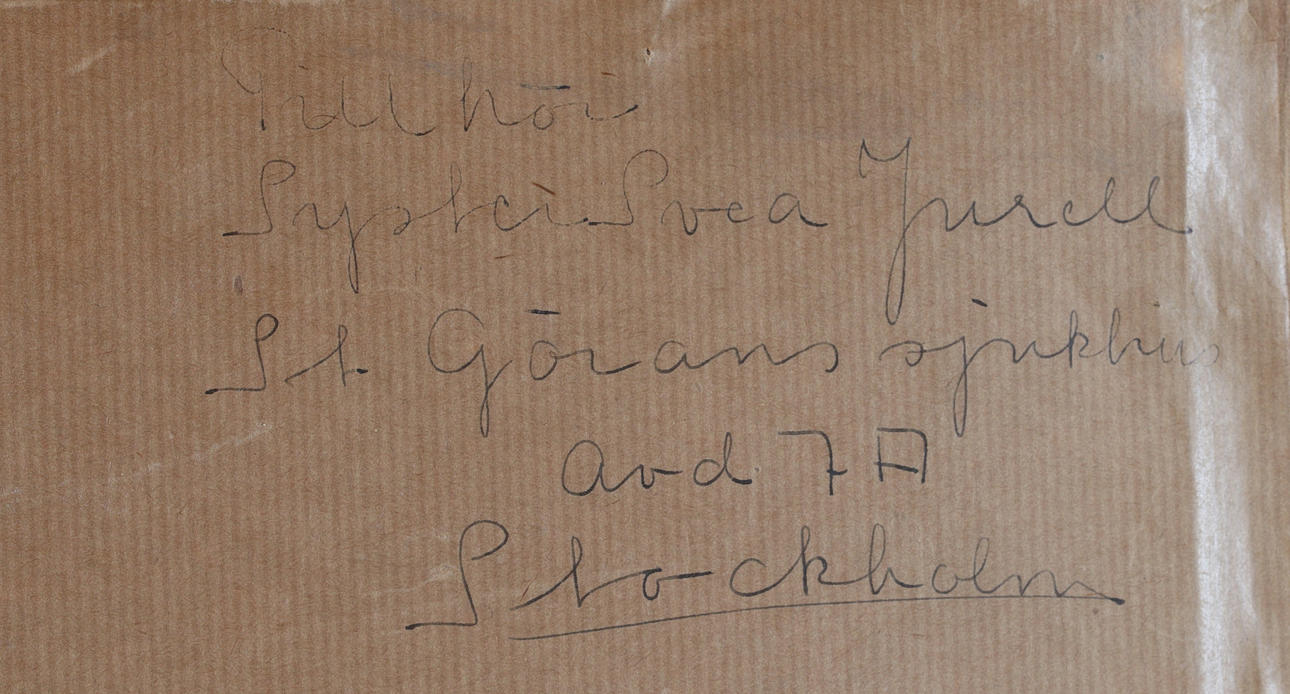 Tillhör
Syster Svea Jurell
St. Görans sjukhus
avd 7 A
Stockholm